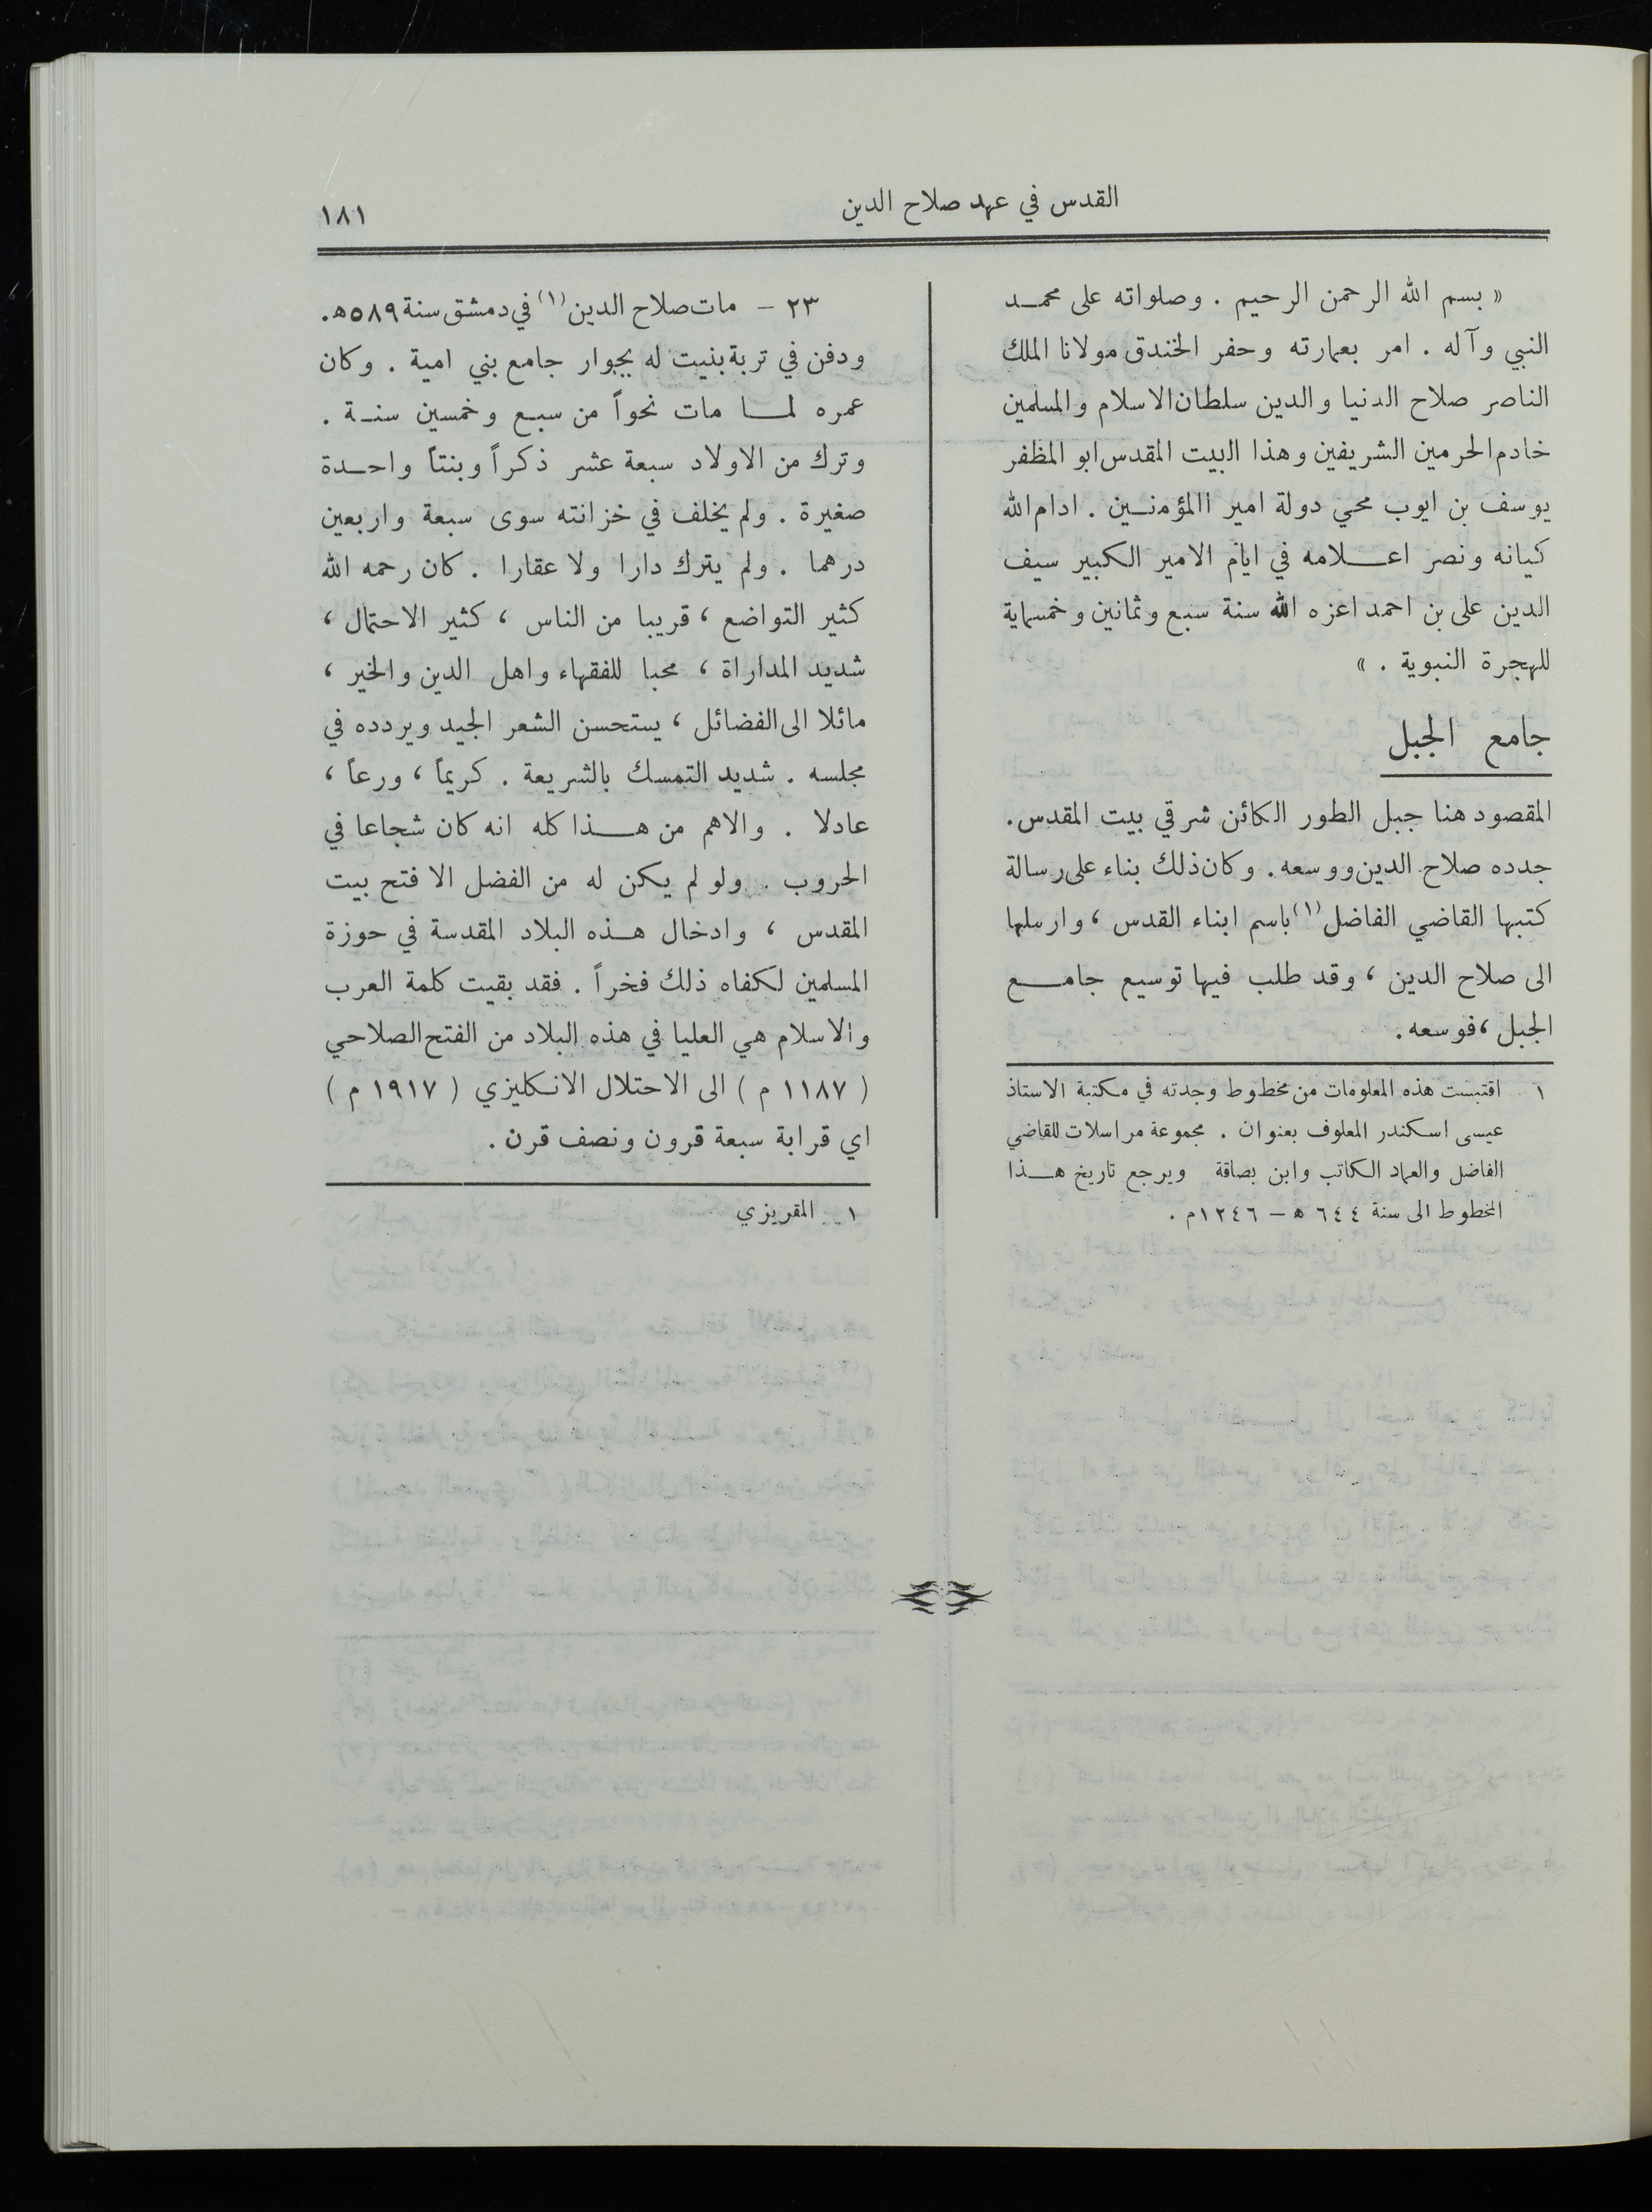 القدس في عهد صلاح الدين
١٨١
« بسم الله الرحمن الرحيم . وصلواته على محمد
النبي وآله . امر بعمارته وحفر الخندق مولانا الملك
الناصر صلاح الدنيا والدين سلطان الاسلام والمسلمين
خادم الحرمين الشريفين وهذا البيت المقدس ابو المظفر
يوسف بن ايوب محي دولة امير االمؤمنين . ادام الله
كيانه ونصر اعلامه في ايام الامير الكبير سيف
الدين على بن احمد اعزه الله سنة سبع وثمانين وخمسماية
للهجرة النبوية . »
جامع الجبل
المقصود هنا جبل الطور الكائن شرقي بيت المقدس.
جدده صلاح الدين ووسعه. وكان ذلك بناء على رسالة
كتبها القاضي الفاضل (١) باسم ابناء القدس ، وارسلها
الى صلاح الدين ، وقد طلب فيها توسيع جامع
الجبل ، فوسعه.
١ اقتبست هذه المعلومات من مخطوط وجدته في مكتبة الاستاذ
عيسى اسكندر المعلوف بعنوان . مجموعة مراسلات للقاضي
الفاضل والعماد الكاتب وابن بصاقة ويرجع تاريخ هذا
المخطوط الى سنة ٦٤٤ ه – ١٢٤٦م .
٢٣ – مات صلاح الدين (١) في دمشق سنة ٥٨٩ه.
ودفن في تربة بنيت له بجوار جامع بني امية . وكان
عمره لما مات نحواً من سبع وخمسين سنة .
وترك من الاولاد سبعة عشر ذكراً وبنتاً واحدة
صغيرة . ولم يخلف في خزانته سوى سبعة واربعين
درهما . ولم يترك دارا ولا عقارا . كان رحمه الله
كثير التواضع ، قريبا من الناس ، كثير الاحتمال ،
شديد المداراة ، محبا للفقهاء واهل الدين والخير ،
مائلا الى الفضائل ، يستحسن الشعر الجيد ويردده في
مجلسه . شديد التمسك بالشريعة . كريماً ، ورعاً ،
عادلا . والاهم من هذا كله انه كان شجاعا في
الحروب . ولو لم يكن له من الفضل الا فتح بيت
المقدس ، وادخال هذه البلاد المقدسة في حوزة
المسلمين لكفاه ذلك فخراً . فقد بقيت كلمة العرب
والاسلام هي العليا في هذه البلاد من الفتح الصلاحي
( ١١٨٧ م ) الى الاحتلال الانكليزي ( ١٩١٧ م )
اي قرابة سبعة قرون ونصف قرن .
١ المقريزي